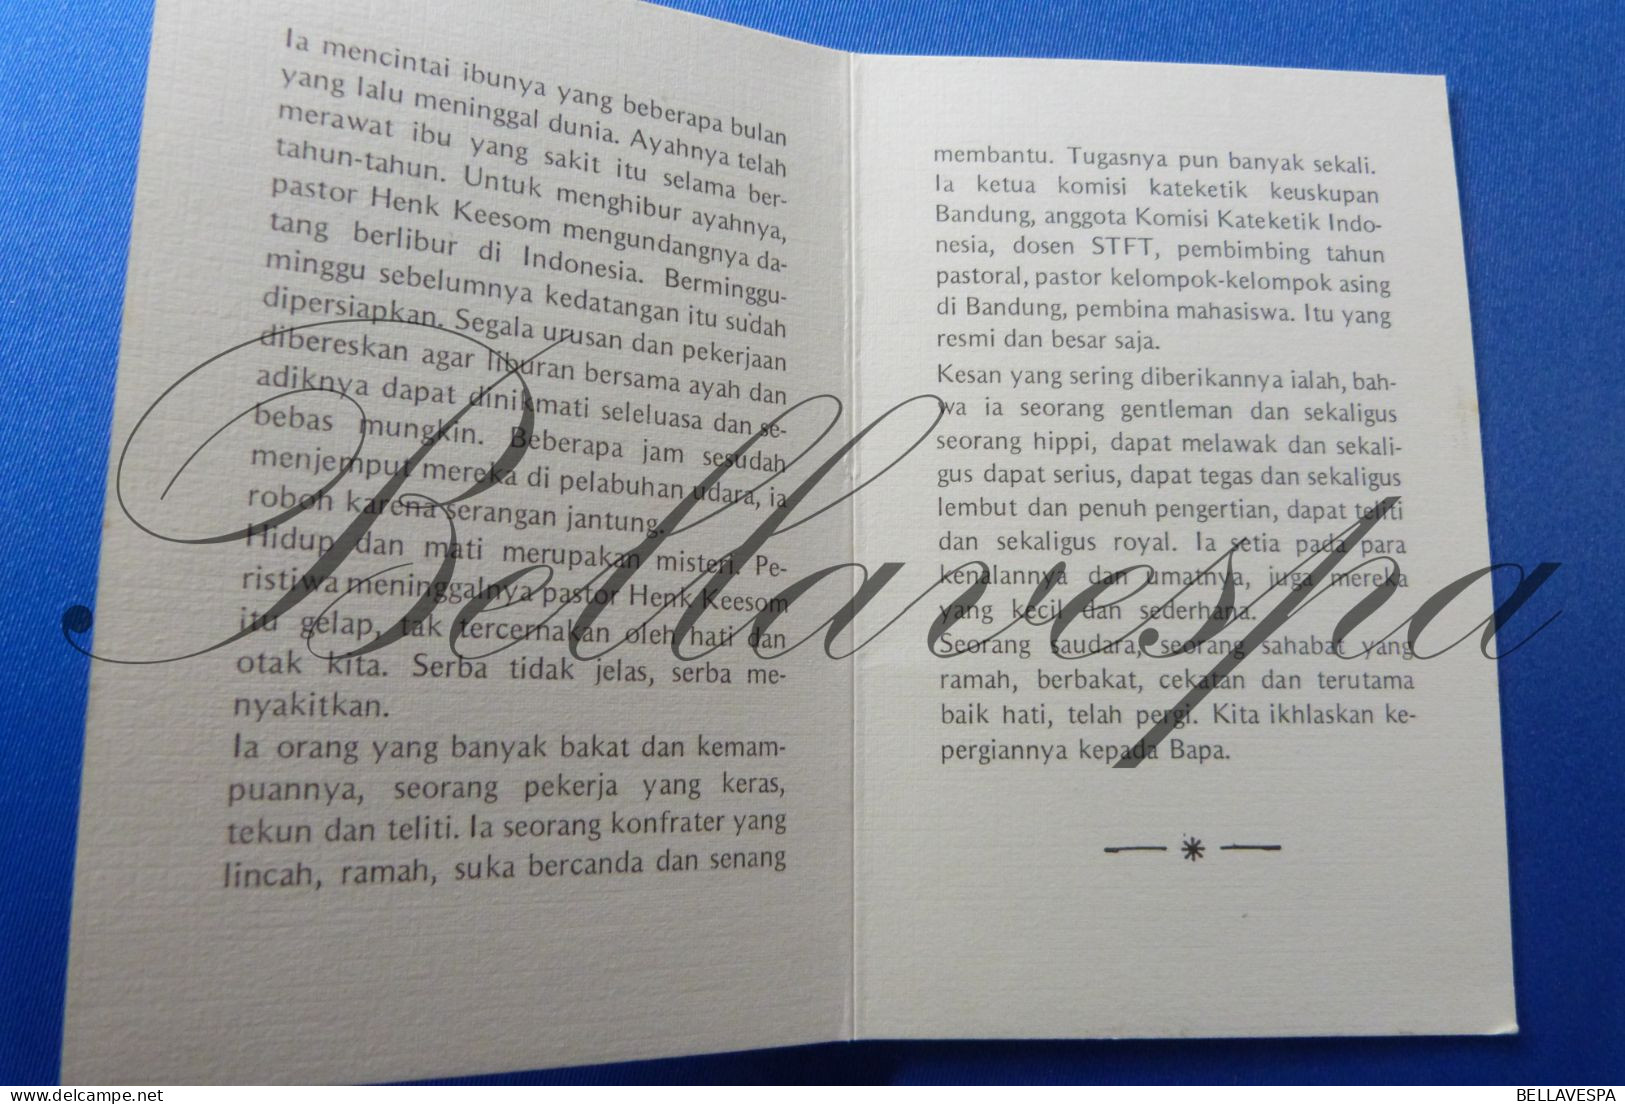 Ia mencintai ibunya yang beberapa bulan
yang lalu meninggal dunia. Ayahnya telah
merawat ibu yang sakit itu selama ber-
tahun-tahun. Untuk menghibur ayahnya,
pastor Henk Keesom mengundangnya da-
tang berlibur di Indonesia. Berminggu-
minggu sebelumnya kedatangan itu sudah
dipersiapkan. Segala urusan dan pekerjaan
dibereskan agar liburan bersama ayah dan
adiknya dapat dinikmati seleluasa dan se-
bebas mungkin. Beberapa jam sesudah
menjemput mereka di pelabuhan udara, ia
roboh karena serangan jantung.
Hidup dan mati merupakan misteri. Pe-
ristiwa meninggalnya pastor Henk Keesom
itu gelap, tak tercernakan oleh hati dan
otak kita. Serba tidak jelas, serba me-
nyakitkan.
Ia orang yang banyak bakat dan kemam-
puannya, seorang pekerja yang keras,
tekun dan teliti. Ia seorang konfrater yang
lincah, ramah, suka bercanda dan senang
membantu. Tugasnya pun banyak sekali.
Ia ketua komisi kateketik keuskupan
Bandung, anggota Komisi Kateketik Indo-
nesia, dosen STFT, pembimbing tahun
pastoral, pastor kelompok-kelompok asing
di Bandung, pembina mahasiswa. Itu yang
resmi dan besar saja.
Kesan yang sering diberikannya ialah, bah-
wa ia seorang gentleman dan sekaligus
seorang hippi, dapat melawak dan sekali-
gus dapat serius, dapat tegas dan sekaligus
lembut dan penuh pengertian, dapat teliti
dan sekaligus royal. Ia setia pada para
kenalannya dan umatnya, juga mereka
yang kecil dan sederhana.
Seorang saudara, seorang sahabat yang
ramah, berbakat, cekatan dan terutama
baik hati, telah pergi. Kita ikhlaskan ke-
pergiannya kepada Bapa.
Bellavespa
delcampe.net
BELLAVESPA